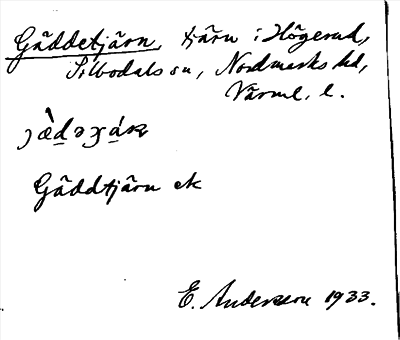 Gäddetjärn, tjärn i Högerud,
Silbodals sn, Nordmarks hd,
Värml. l.
Gäddtjärn ek
E. Andersson 1933.